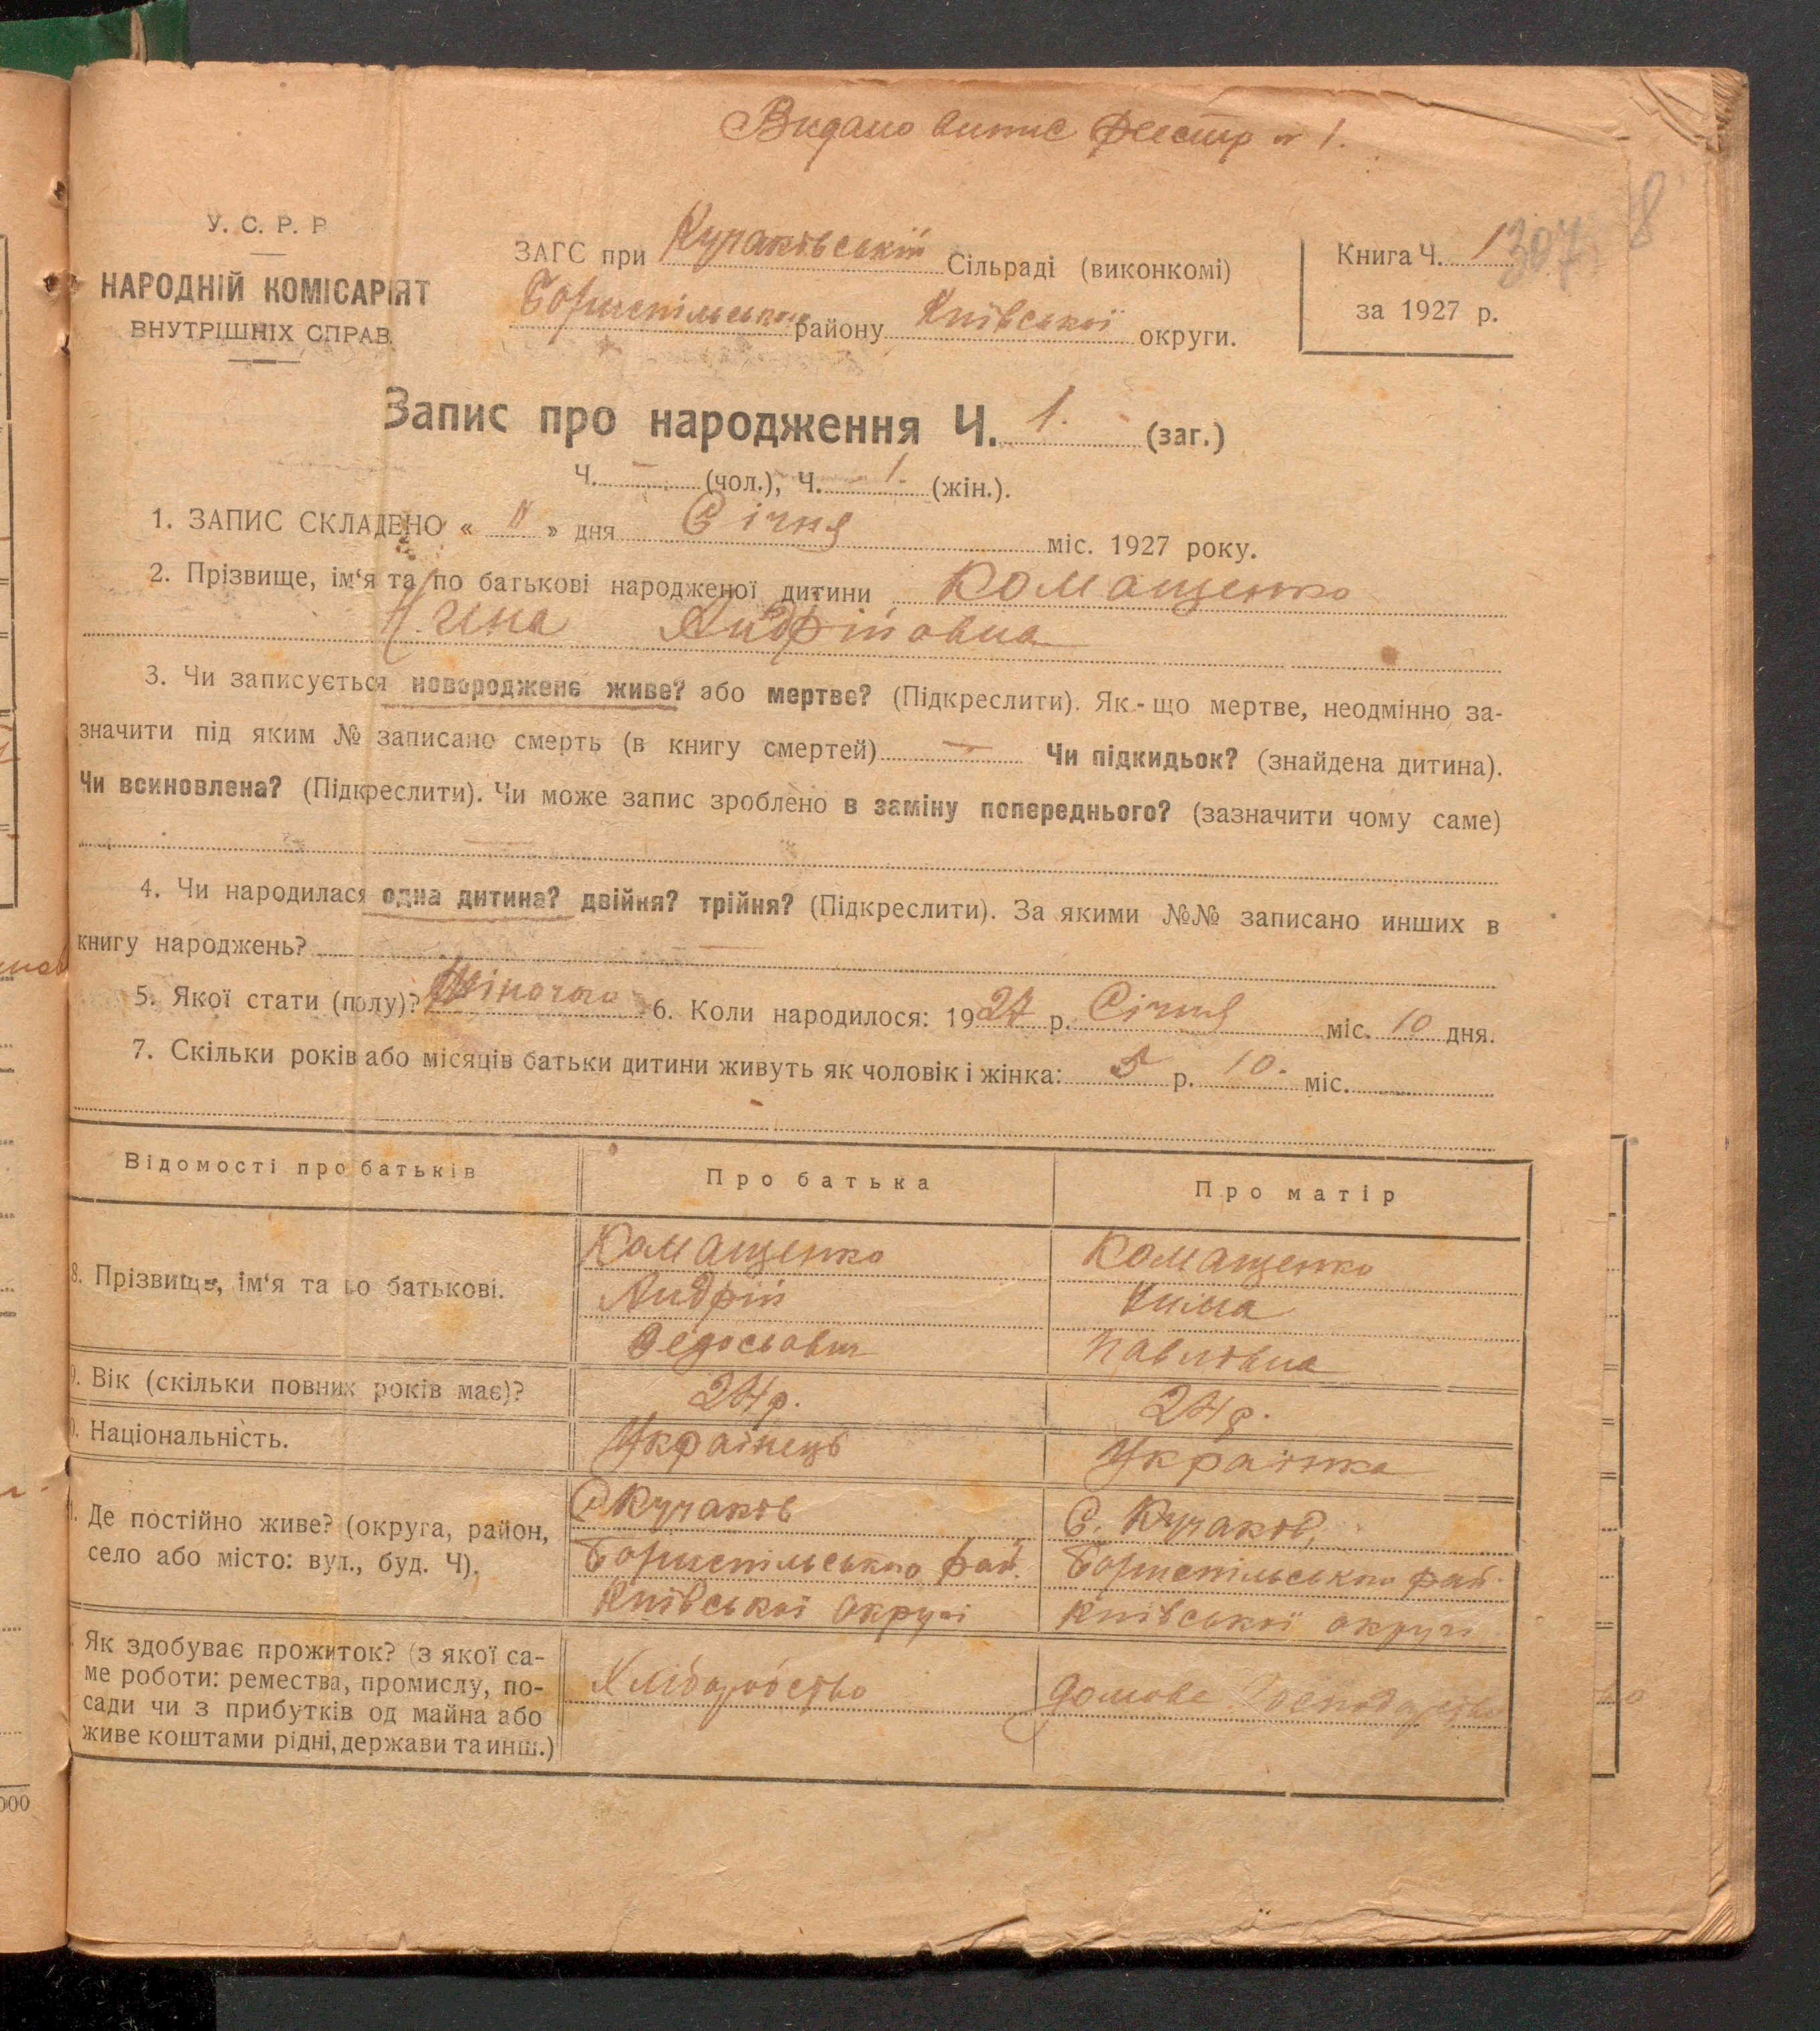 Видано випис Реєстр № 1.
307 8
У. С. Р. Р
НАРОДНІЙ КОМІСАРІЯТ
ВНУТРІШНІХ СПРАВ.
ЗАГС при Кучаківській Сільраді (виконкомі)
Бориспільського району Київської округи.
Книга Ч. 1
за 1927 р.
Запис про народження Ч. 1. (заг.)
Ч. — (чол.), Ч. 1. (жін.).
1. ЗАПИС СКЛАДЕНО « » дня Січня міс. 1927 року.
2. Прізвище, ім‘я та по батькові народженої дитини Комащенко
Андрійовна
3. Чи записується новороджене живе? або мертве? (Підкреслити). Як-що мертве, неодмінно за-
значити під яким № записано смерть (в книгу смертей) — Чи підкидьок? (знайдена дитина).
Чи всиновлена? (Підкреслити). Чи може запис зроблено в заміну попереднього? (зазначити чому саме)
—
4. Чи народилася одна дитина? двійня? трійня? (Підкреслити). За якими №№ записано инших в
книгу народжень? —
5. Якої стати (полу)? Жіночого 6. Коли народилося: 1927 р. Січня міс. 10 дня.
7. Скільки років або місяців батьки дитини живуть як чоловік і жінка: 5 р. 10. міс.
Відомості про батьків Про батька Про матір
8. Прізвище, ім‘я та по батькові. Комащенко Комащенко
Андрій
Федосьович Павлівна
9. Вік (скільки повних років має)? 24 р. 24 р.
0. Національність. Українець Українка
1. Де постійно живе? (округа, район,
село або місто: вул., буд. Ч).
С Кучаків С. Кучаків,
Бориспільського рай. Бориспільського рай.
Київської округи Київської округи
Як здобуває прожиток? (з якої са-
ме роботи: ремества, промислу, по-
сади чи з прибутків од майна або
живе коштами рідні, держави та инш.)
Хліборобство домове Господарство
000